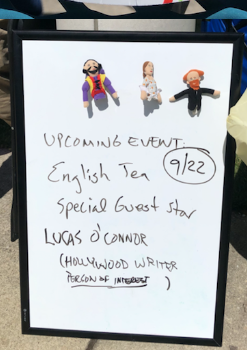 UPCOMING EVENT:
9/22
English Tea
Special Guest Star
LUCAS O'CONNOR
(HOLLYWOOD WRITER
PERSON OF INTEREST)